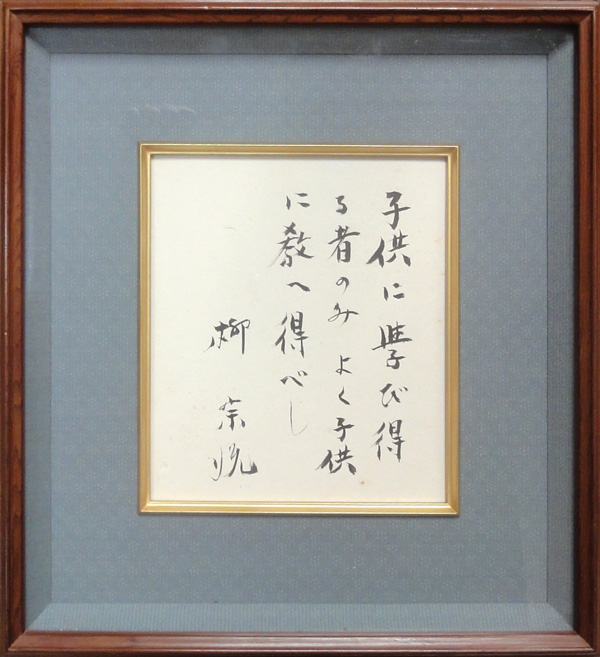 子供に學び得
る者のみよく子供
に敎へ得べし
柳宗悦